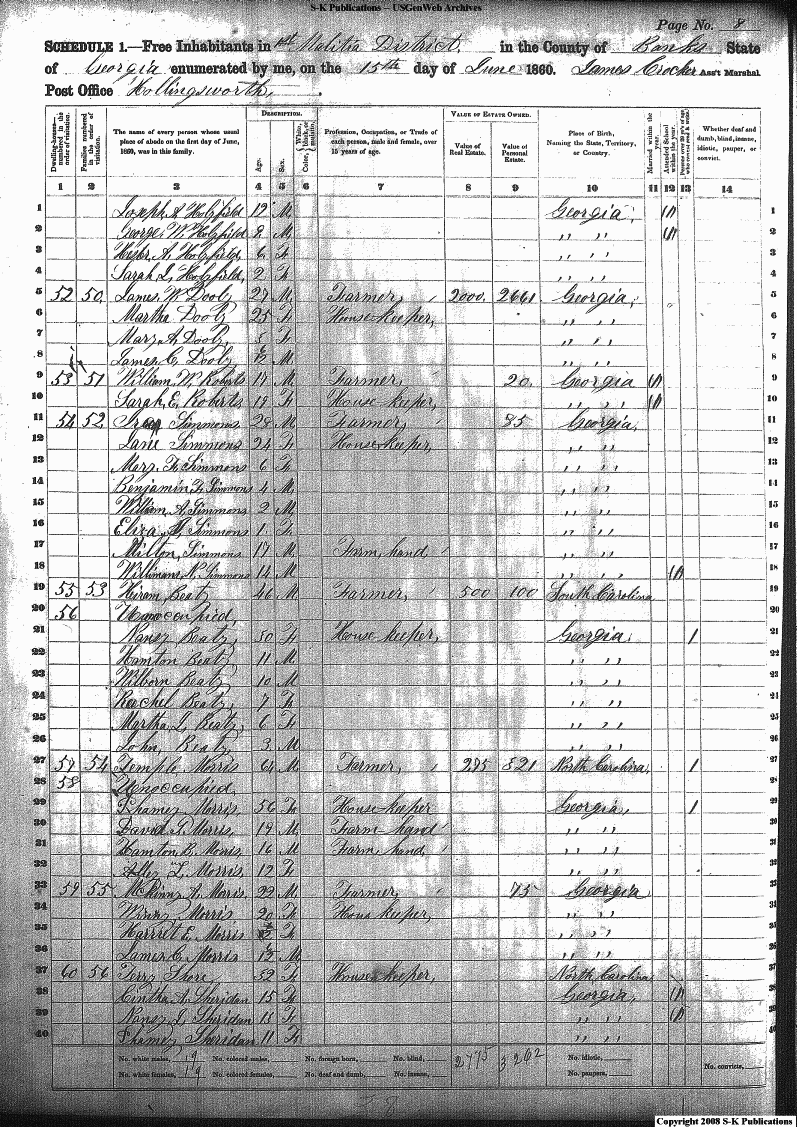 S-K Publications – USGenWeb Archives
Page No. 8
SCHEDULE 1.—Free Inhabitants in 1st Malitia District in the County of Banks State
of Georgia enumerated by me, on the 15th day of June 1860. James Crocker Ass't Marshal.
Post Office Hollingsworth.
DESCRIPTION. VALUE OF ESTATE OWNED.
Dwelling-houses— numbered in the order of visitation. Families numbered in the order of visitation. The name of every person whose usual place of abode on the first day of June, 1860, was in this family. Age. Sex. Color, White, black, or mulatto. Profession, Occupation, or Trade of each person, male and female, over 15 years of age. Value of Real Estate. Value of Personal Estate. Place of Birth, Naming the State, Territory, or Country. Married within the year. Attended School within the year. Whether deaf and dumb, blind, insane, idiotic, pauper, or convict.
1 2 3 4 5 6 7 8 9 10 11 12 13 14
1 Joseph A Holyfield 12 M Georgia, 1 1
2 George W. Holyfield 8 M ,, ,, 1 2
3 A. Holyfield, 6 F ,, ,, 3
4 Sarah L. Holyfield, 2 F ,, ,, 4
5 52 50 James W. Dooly 27 M Farmer, 2000. 2661 Georgia, 5
6 Martha Dooly 25 F House keeper, ,, ,, 6
7 Mary A. Dooly, 3 F ,, ,, 7
8 James C. Dooly M ,, ,, 8
9 53 51 William W. Roberts 19 M Farmer, 20. Georgia 1 9
10 Sarah E. Roberts 19 F House keeper, ,, ,, 1 10
11 54 52 Simmons 28 M Farmer, 85 Georgia, 11
12 Lane Simmons 24 F House keeper, ,, ,, 12
13 Mary F. Simmons 6 F ,, ,, 13
14 Benjamin F. Simmons 4 M ,, ,, 14
15 William A. Simmons 2 M ,, ,, 15
16 Eliza Simmons 1 F ,, ,, 16
17 Milton, Simmons 17 M Farm hand ,, ,, 17
18 N. Simmons 14 M ,, ,, 1 18
19 55 53 Hiram Beaty 46 M Farmer, 500 100 South Carolina 19
20 56 Unoccupied, 20
21 Nancy Beaty, 30 F House keeper, Georgia, 1 21
22 Hamton Beaty 11 M ,, ,, 22
23 Wilborn Beaty 10 M ,, ,, 23
24 Rachel Beaty, 7 F ,, ,, 24
25 Martha L. Beaty, 6 F ,, ,, 25
26 John, Beaty, 3 M ,, ,, 26
27 57 54 Temple Morris 64 M Farmer, 295 821 North Carolina, 1 27
28 58 Unoccupied, 28
29 Morris, 56 F House keeper Georgia, 1 29
30 David T. Morris, 19 M Farm hand ,, ,, 30
31 Hamton B. Morris, 16 M Farm hand, ,, ,, 31
32 L. Morris, 12 F ,, ,, 32
33 59 55 McKinny A. Morris, 22 M Farmer, 75 Georgia 33
34 Winny Morris 20 F House keeper, ,, ,, 34
35 Harriet E. Morris F ,, ,, 35
36 James C. Morris M ,, ,, 36
37 60 56 Terry Shore, 52 F House keeper, North Carolina 37
38 Cintha A. Sheridan 15 F Georgia, 1 38
39 Nancy J. Sheridan 13 F ,, ,, 1 39
40 Sheridan 11 F ,, ,, 40
No. white males, 19 No. colored males, No. foreign born, No. blind, 2775 3262 No. idiotic, No. convicts,
No. white females, 19 No. colored females, No. deaf and dumb, No. insane, No. paupers,
Copyright 2008 S-K Publications